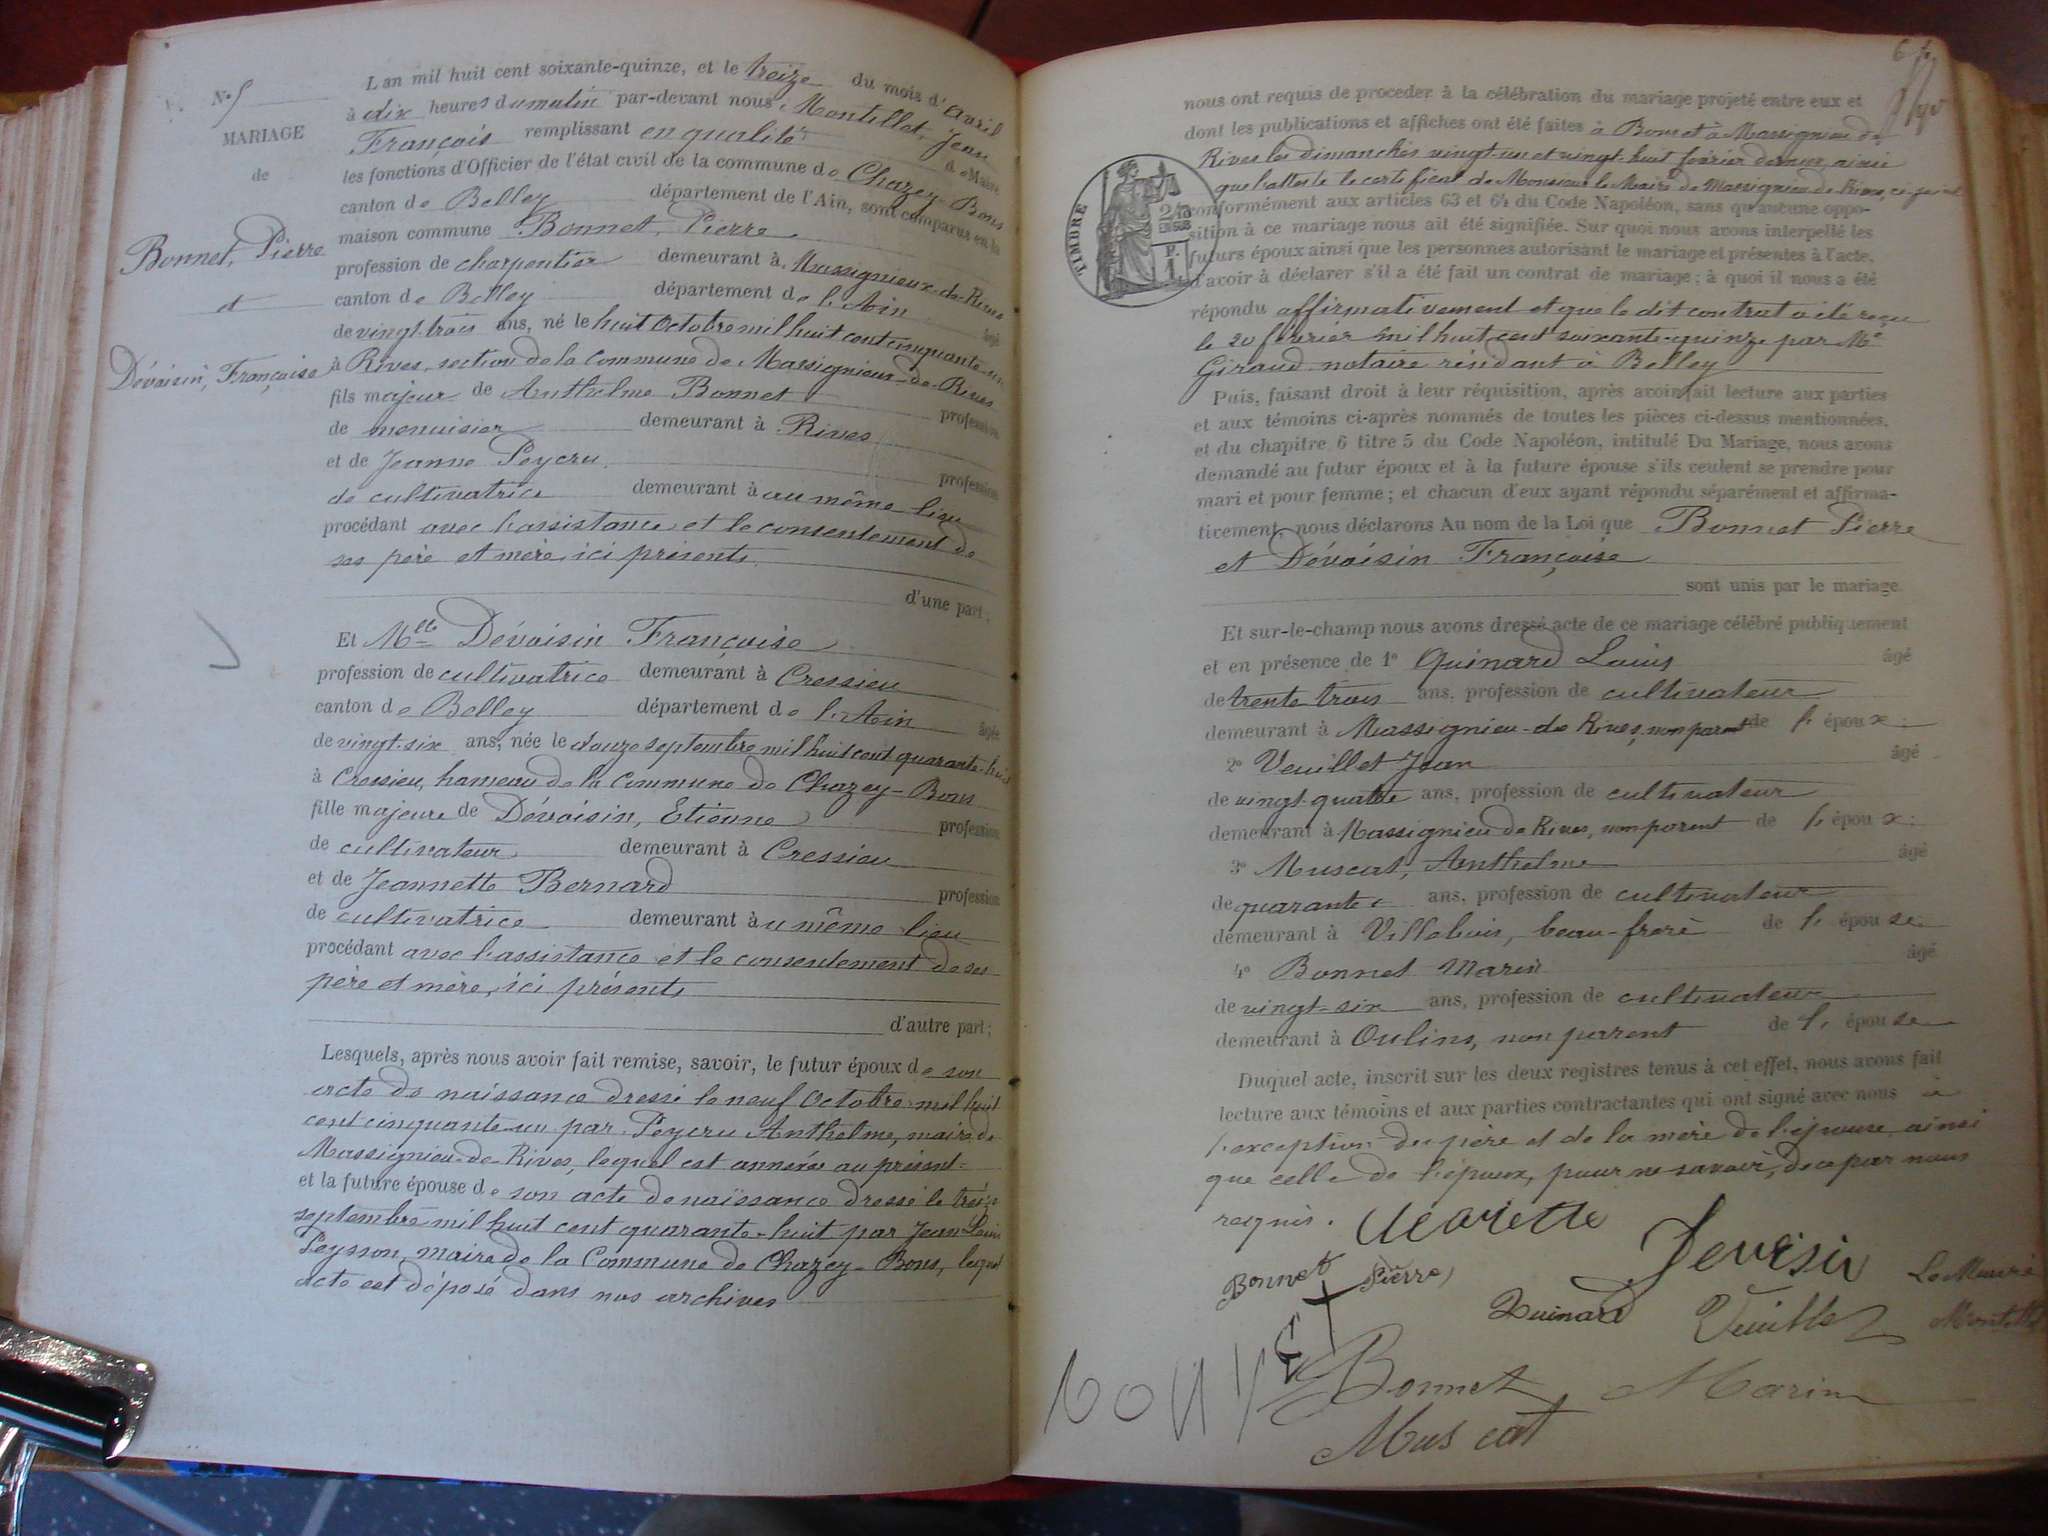 N° 5
MARIAGE
de
Bonnet, Pierre
et
Dévoisin, Françoise
L'an mil huit cent soixante-quinze, et le treize du mois d'avril
à dix heures du matin par-devant nous Montillet, Jean
François remplissant en qualité de Maire
les fonctions d'Officier de l'état civil de la commune de Chazey-Bons
canton de Belley département de l'Ain, sont comparus en la
maison commune Bonnet, Pierre
profession de charpentier demeurant à Massignieux-de-Rives
canton de Belley département de l'Ain âgé
de vingt-trois ans, né le huit Octobre mil huit cent cinquante-un
à Rives, section de la Commune de Massignieux-de-Rives
fils majeur de Anthelme Bonnet profession
de menuisier demeurant à Rives
et de Jeanne Peycru profession
de cultivatrice demeurant à au même lieu
procédant avec l'assistance et le consentement de
ses père et mère, ici présents
d'une part;
Et Mlle Dévoisin Françoise
profession de cultivatrice demeurant à Cressieu
canton de Belley département de l'Ain âgée
de vingt-six ans, née le douze septembre mil huit cent quarante-huit
à Cressieu, hameau de la Commune de Chazey-Bons
fille majeure de Dévoisin, Etienne profession
de cultivateur demeurant à Cressieu
et de Jeannette Bernard profession
de cultivatrice demeurant au même lieu
procédant avec l'assistance et le consentement de ses
père et mère, ici présents
d'autre part;
Lesquels, après nous avoir fait remise, savoir, le futur époux de son
acte de naissance dressé le neuf Octobre mil huit
cent cinquante-un par Peycru Anthelme, maire de
Massignieu-de-Rives, lequel est annexé au présent
et la future épouse de son acte de naissance dressé le treize
septembre mil huit cent quarante-huit par Jean Louis
Peysson, maire de la Commune de Chazey-Bons, lequel
acte est déposé dans nos archives
nous ont requis de procéder à la célébration du mariage projeté entre eux et
dont les publications et affiches ont été faites à Bons et à Massignieu de
Rives les dimanches vingt-un et vingt-huit février dernier, ainsi
que l'atteste le certificat de Monsieur le Maire de Massignieu de Rives, ci-joint
conformément aux articles 63 et 64 du Code Napoléon, sans qu'aucune oppo-
sition à ce mariage nous ait été signifiée. Sur quoi nous avons interpellé les
futurs époux ainsi que les personnes autorisant le mariage et présentes à l'acte,
d'avoir à déclarer s'il a été fait un contrat de mariage; à quoi il nous a été
répondu affirmativement et que le dit contrat a été reçu
le 20 février mil huit cent soixante-quinze par Me
Giraud notaire résidant à Belley
TIMBRE
Puis, faisant droit à leur réquisition, après avoir fait lecture aux parties
et aux témoins ci-après nommés de toutes les pièces ci-dessus mentionnées,
et du chapitre 6 titre 5 du Code Napoléon, intitulé Du Mariage, nous avons
demandé au futur époux et à la future épouse s'ils veulent se prendre pour
mari et pour femme; et chacun d'eux ayant répondu séparément et affirma-
tivement, nous déclarons Au nom de la Loi que Bonnet Pierre
et Dévoisin Françoise
sont unis par le mariage.
Et sur-le-champ nous avons dressé acte de ce mariage célébré publiquement
et en présence de 1° Quinard Louis âgé
de trente trois ans, profession de cultivateur
demeurant à Massignieu-de Rives, non parent de l'époux;
2° Veuillet Jean âgé
de vingt-quatre ans, profession de cultivateur
demeurant à Massignieu de Rives, non parent de l'époux;
3° Muscat, Anthelme âgé
de quarante ans, profession de cultivateur
demeurant à Villebois, beau-frère de l'épouse.
4° Bonnet Marin âgé
de vingt-six ans, profession de cultivateur
demeurant à Oulins, non parent de l'épouse
Duquel acte, inscrit sur les deux registres tenus à cet effet, nous avons fait
lecture aux témoins et aux parties contractantes qui ont signé avec nous à
l'exception du père et de la mère de l'épouse, ainsi
que celle de l'époux, pour ne savoir, de ce par nous
requis.
Bonnet Pierre
Devisin
Le Maire
Quinard Veuillet
Bonnet Marin
Muscat